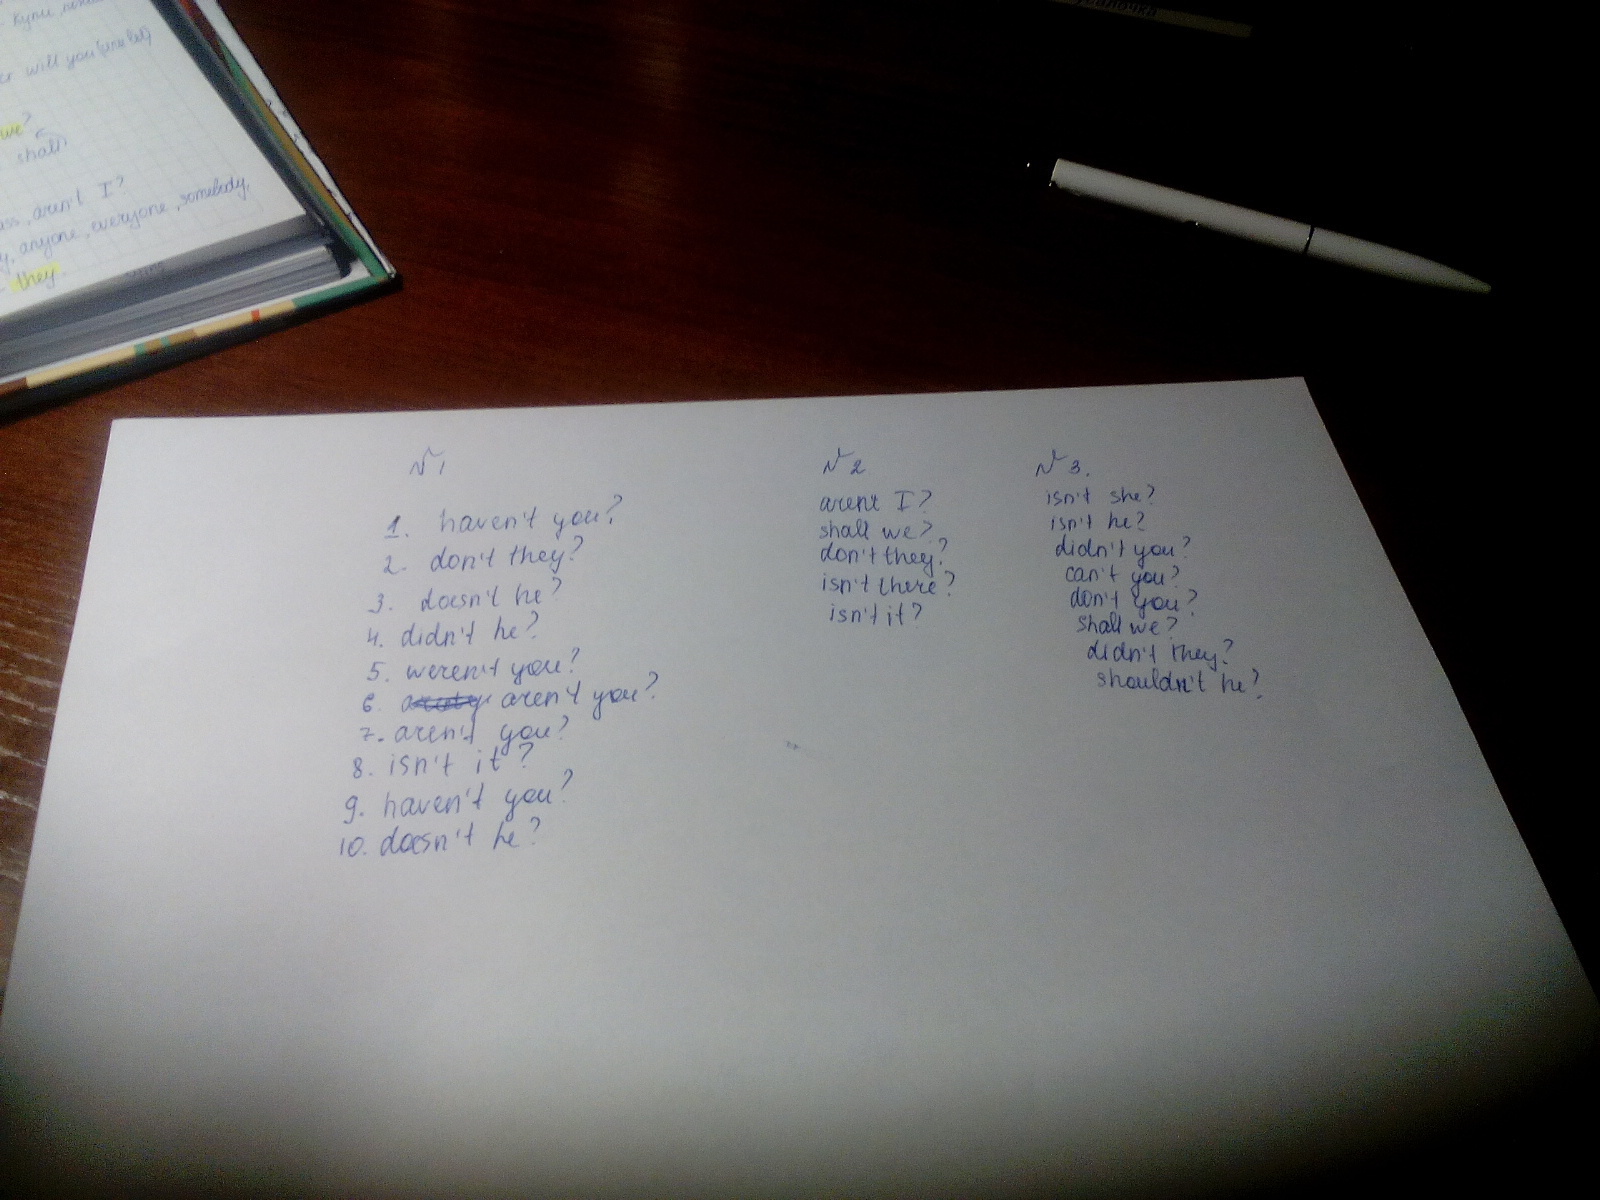 will you
we?
shall
aren't I?
anyone, everyone, somebody,
they
№1
1. haven't you?
2. don't they?
3. doesn't he?
4. didn't he?
5. weren't you?
6. aren't you?
7. aren't you?
8. isn't it?
9. haven't you?
10. doesn't he?
№2
arent I?
shall we?
don't they?
isn't there?
isn't it?
№3.
isn't she?
isn't he?
didn't you?
can't you?
don't you?
shall we?
didn't they?
shouldn't he?